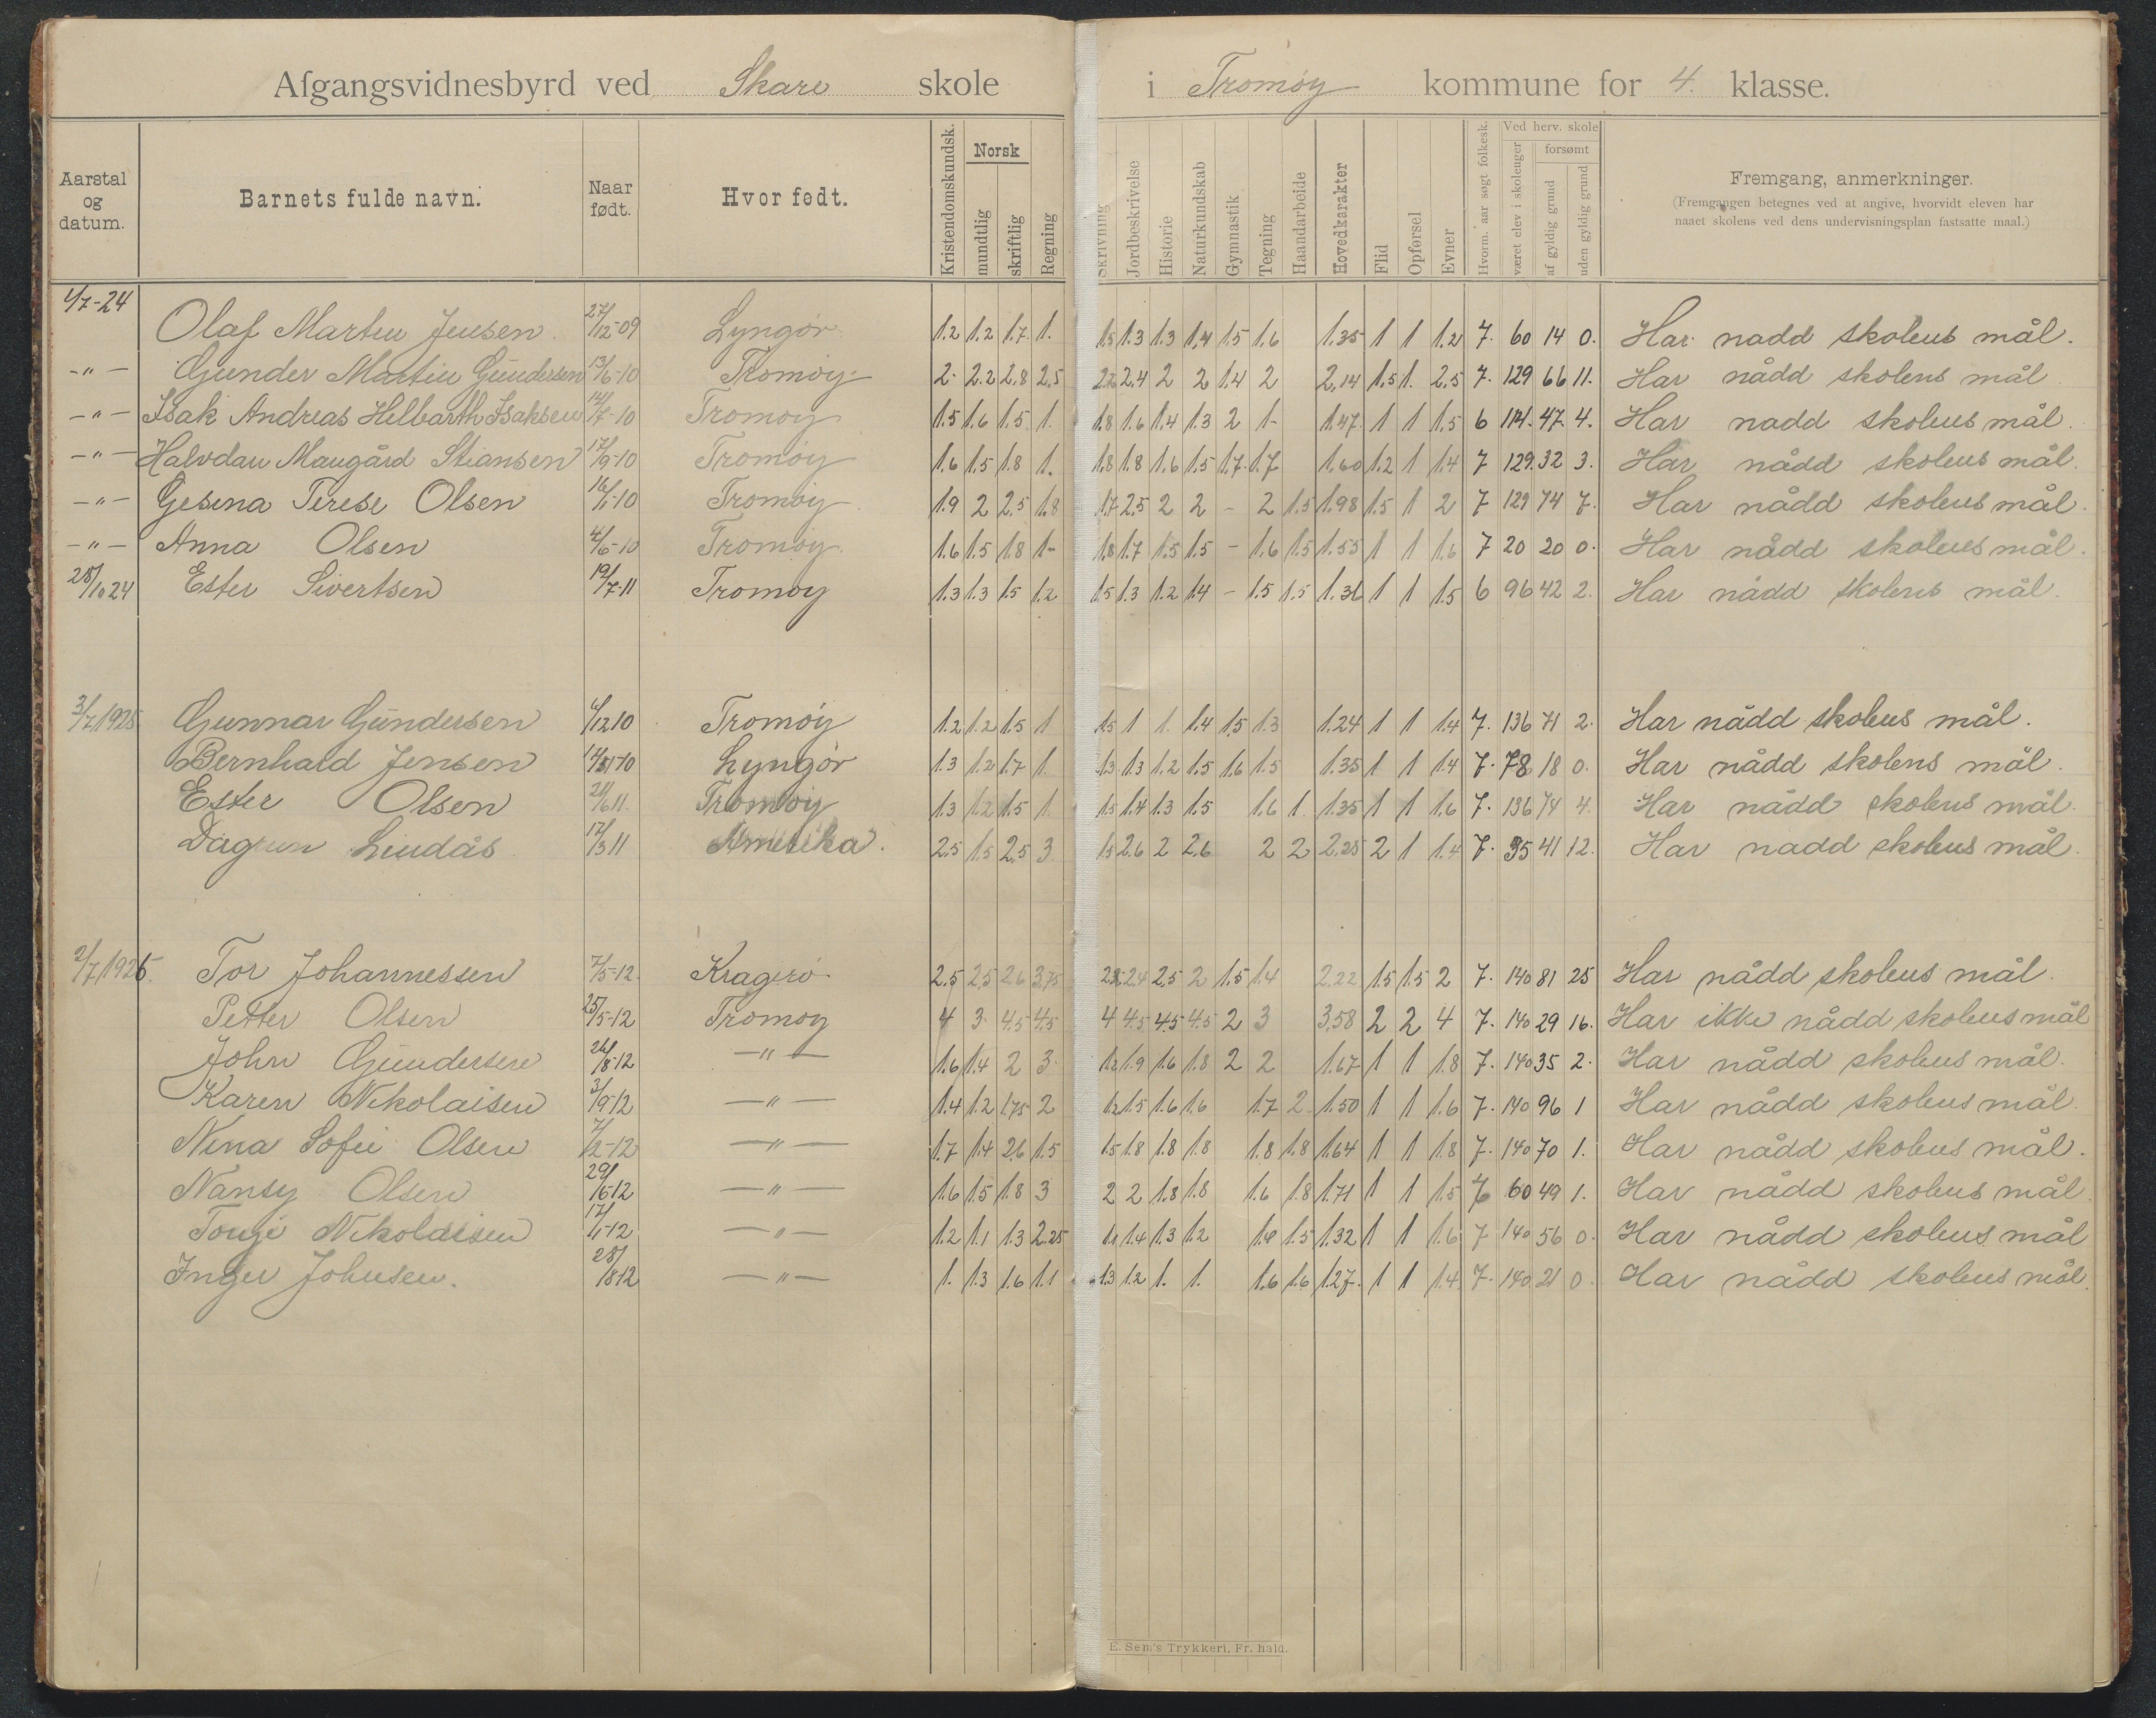 Afgangsvidnesbyrd ved Skare skole i Tromøy kommune for 4. klasse.
Aarstal og datum. Barnets fulde navn. Naar født. Hvor født. Kristendomskundsk. Norsk mundtlig skriftlig Regning Skrivning Jordbeskrivelse Historie Naturkundskab Gymnastik Tegning Haandarbeide Hovedkarakter Flid Opførsel Evner Hvorm. aar søgt folkesk. Ved herv. skole været elev i skoleuger forsømt af gyldig grund uden gyldig grund Fremgang, anmerkninger.
(Fremgangen betegnes ved at angive, hvorvidt eleven har
naaet skolens ved dens undervisningsplan fastsatte maal.)
1/7-24 Olaf Martin Jensen 27/12-09 Lyngør 1.2 1.2 1.7 1. 1.5 1.3 1.3 1.4 1.5 1.6 1.35 1 1 1.2 7. 60 14 0. Har nadd skolens mål.
-"- Gunder Martin Gundersen 13/6-10 Tromøy 2. 2.2 2.8 2.5 2.4 2 2 1.4 2 2.14 1.5 1. 2.5 7. 129 66 11. Har nådd skolens mål
-"- Isak Andreas Helbarth Isaksen 14/7-10 Tromoy 1.5 1.6 1.5 1. 1.8 1.6 1.4 1.3 2 1- 1.47 1 1 1.5 6 114. 47. 4. Har nadd skolens mål.
-"- Halvdan Maugård Stiansen 17/9-10 Tromøy 1.6 1.5 1.8 1. 1.8 1.8 1.6 1.5 1.7 1.7 1.60 1.2 1 1.4 7 129. 32 3. Har nådd skolens mål.
-"- Gesina Terese Olsen 16/1-10 Tromøy 1.9 2 2.5 1.8 1.7 2.5 2 2 - 2 1.5 1.98 1.5 1 2 7 129 74 7. Har nådd skolens mål.
-"- Anna Olsen 4/6-10 Tromøy 1.6 1.5 1.8 1- 1.8 1.7 1.5 1.5 - 1.6 1.5 1.55 1 1 1.6 7 20 20 0. Har nådd skolens mål.
28/10 24 Ester Sivertsen 19/7-11 Tromoy 1.3 1.3 1.5 1.2 1.5 1.3 1.2 1.4 - 1.5 1.5 1.36 1 1 1.5 6 96 42 2. Har nådd skolens mål.
3/7 1925 Gunnar Gundersen 4/12 10 Tromøy 1.2 1.2 1.5 1 1.5 1 1. 1.4 1.5 1.3 1.24 1 1 1.4 7. 136 71 2. Har nådd skolens mål.
Bernhard Jensen Lyngør 1.3 1.2 1.7 1. 1.3 1.3 1.2 1.5 1.6 1.5 1.35 1 1 1.4 7. 78 18 0. Har nådd skolens mål.
Ester Olsen 21/6 11. Tromøy 1.3 1.2 1.5 1. 1.5 1.4 1.3 1.5 1.6 1. 1.35 1 1 1.6 7. 136 74 4. Har nådd skolens mål.
Dagrun Lindås 17/3 11 Amerika. 2.5 1.5 2.5 3 1.5 2.6 2 2.6 2 2 2.25 2 1 1.4 7. 35 41 12. Har nadd skolens mål.
2/7 1926. Tor Johannessen 7/5-12. Kragerø 2.5 2.5 2.6 3.75 2.4 2.5 2 1.5 1.4 2.22 1.5 1.5 2 7. 140 81 25 Har nådd skolens mål.
Petter Olsen 25/5-12 Tromoy 4 3. 4.5 4.5 4 4.5 4.5 4.5 2 3 3.58 2 2 4 7. 140 29 16. Har ikke nådd skolens mål
John Gundersen 26/8 12 -"- 1.6 1.4 2 3. 1.2 1.9 1.6 1.8 2 2 1.67 1 1 1.8 7. 140 35 2. Har nådd skolens mål.
Karen Nikolaisen 3/9-12 -"- 1.4 1.2 1.75 2 1.2 1.5 1.6 1.6 1.7 2 1.50 1 1 1.6 7. 140 96 1 Har nådd skolens mål.
Nina Sofie Olsen 7/12-12 -"- 1.7 1.4 2.6 1.5 1.5 1.8 1.8 1.8 1.8 1.8 1.64 1 1 1.8 7. 140 70 1. Har nådd skolens mål.
Nansy Olsen 29/6-12 -"- 1.6 1.5 1.8 3 2 2 1.8 1.8 1.6 1.8 1.71 1 1 1.5 60 49 1. Har nådd skolens mål.
Tonje Nikolaisen 17/1-12 -"- 1.2 1.1 1.3 2.25 1.1 1.4 1.3 1.2 1.6 1.5 1.32 1 1 1.6 7 140 56 0. Har nådd skolens mål
Inger Johnsen. 28/8 12 -"- 1. 1.3 1.6 1.1 1.3 1.2 1. 1. 1.6 1.6 1.27. 1 1 1.4 7. 140 21 0 Har nådd skolens mål.
E. Sem's Trykkeri, Fr. hald.